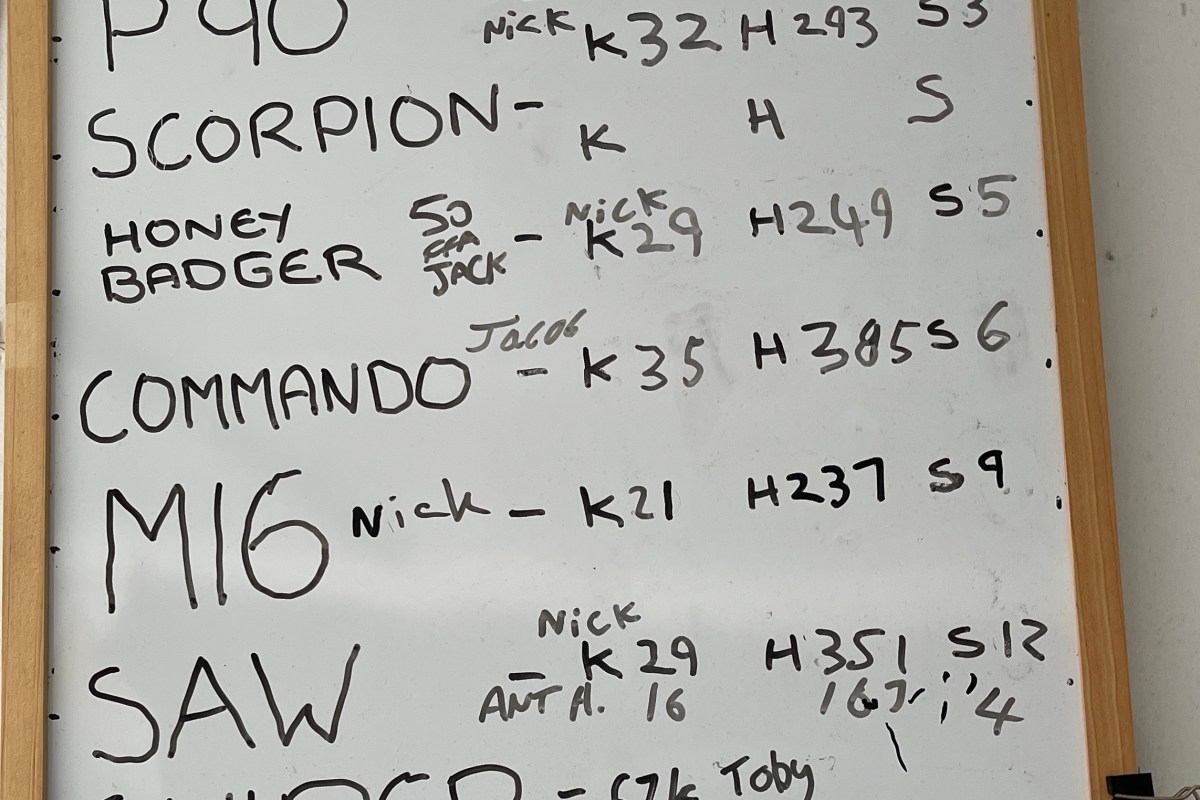 P90 Nick K32 H 293 S3
SCORPION- K H S
HONEY BADGER 50 JACK - Nick K29 H249 S5
COMMANDO Jacob - K 35 H 385 S 6
M16 Nick - K21 H237 S9
SAW - Nick K 29 H351 S12
ANT A. 16 167 4
- Toby